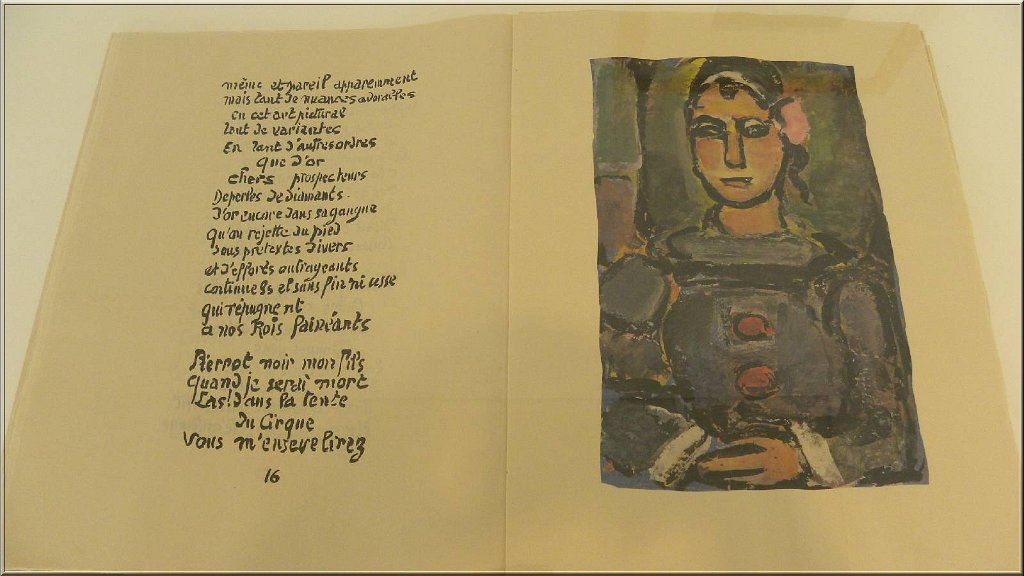 même et pareil apparemment
mais tant de nuances adorables
en cet art pictural
tant de variantes
En tant d'autres ordres
que d'or
chers prospecteurs
De perles de diamants
D'or encore dans sa gangue
qu'on rejette du pied
sous prétextes divers
et d'efforts outrageants
continuels et sans fin ni cesse
qui répugnent
a nos Rois fainéants
Pierrot noir mon fils
quand je serai mort
Las! dans la tente
du Cirque
Vous m'ensevelirez
16